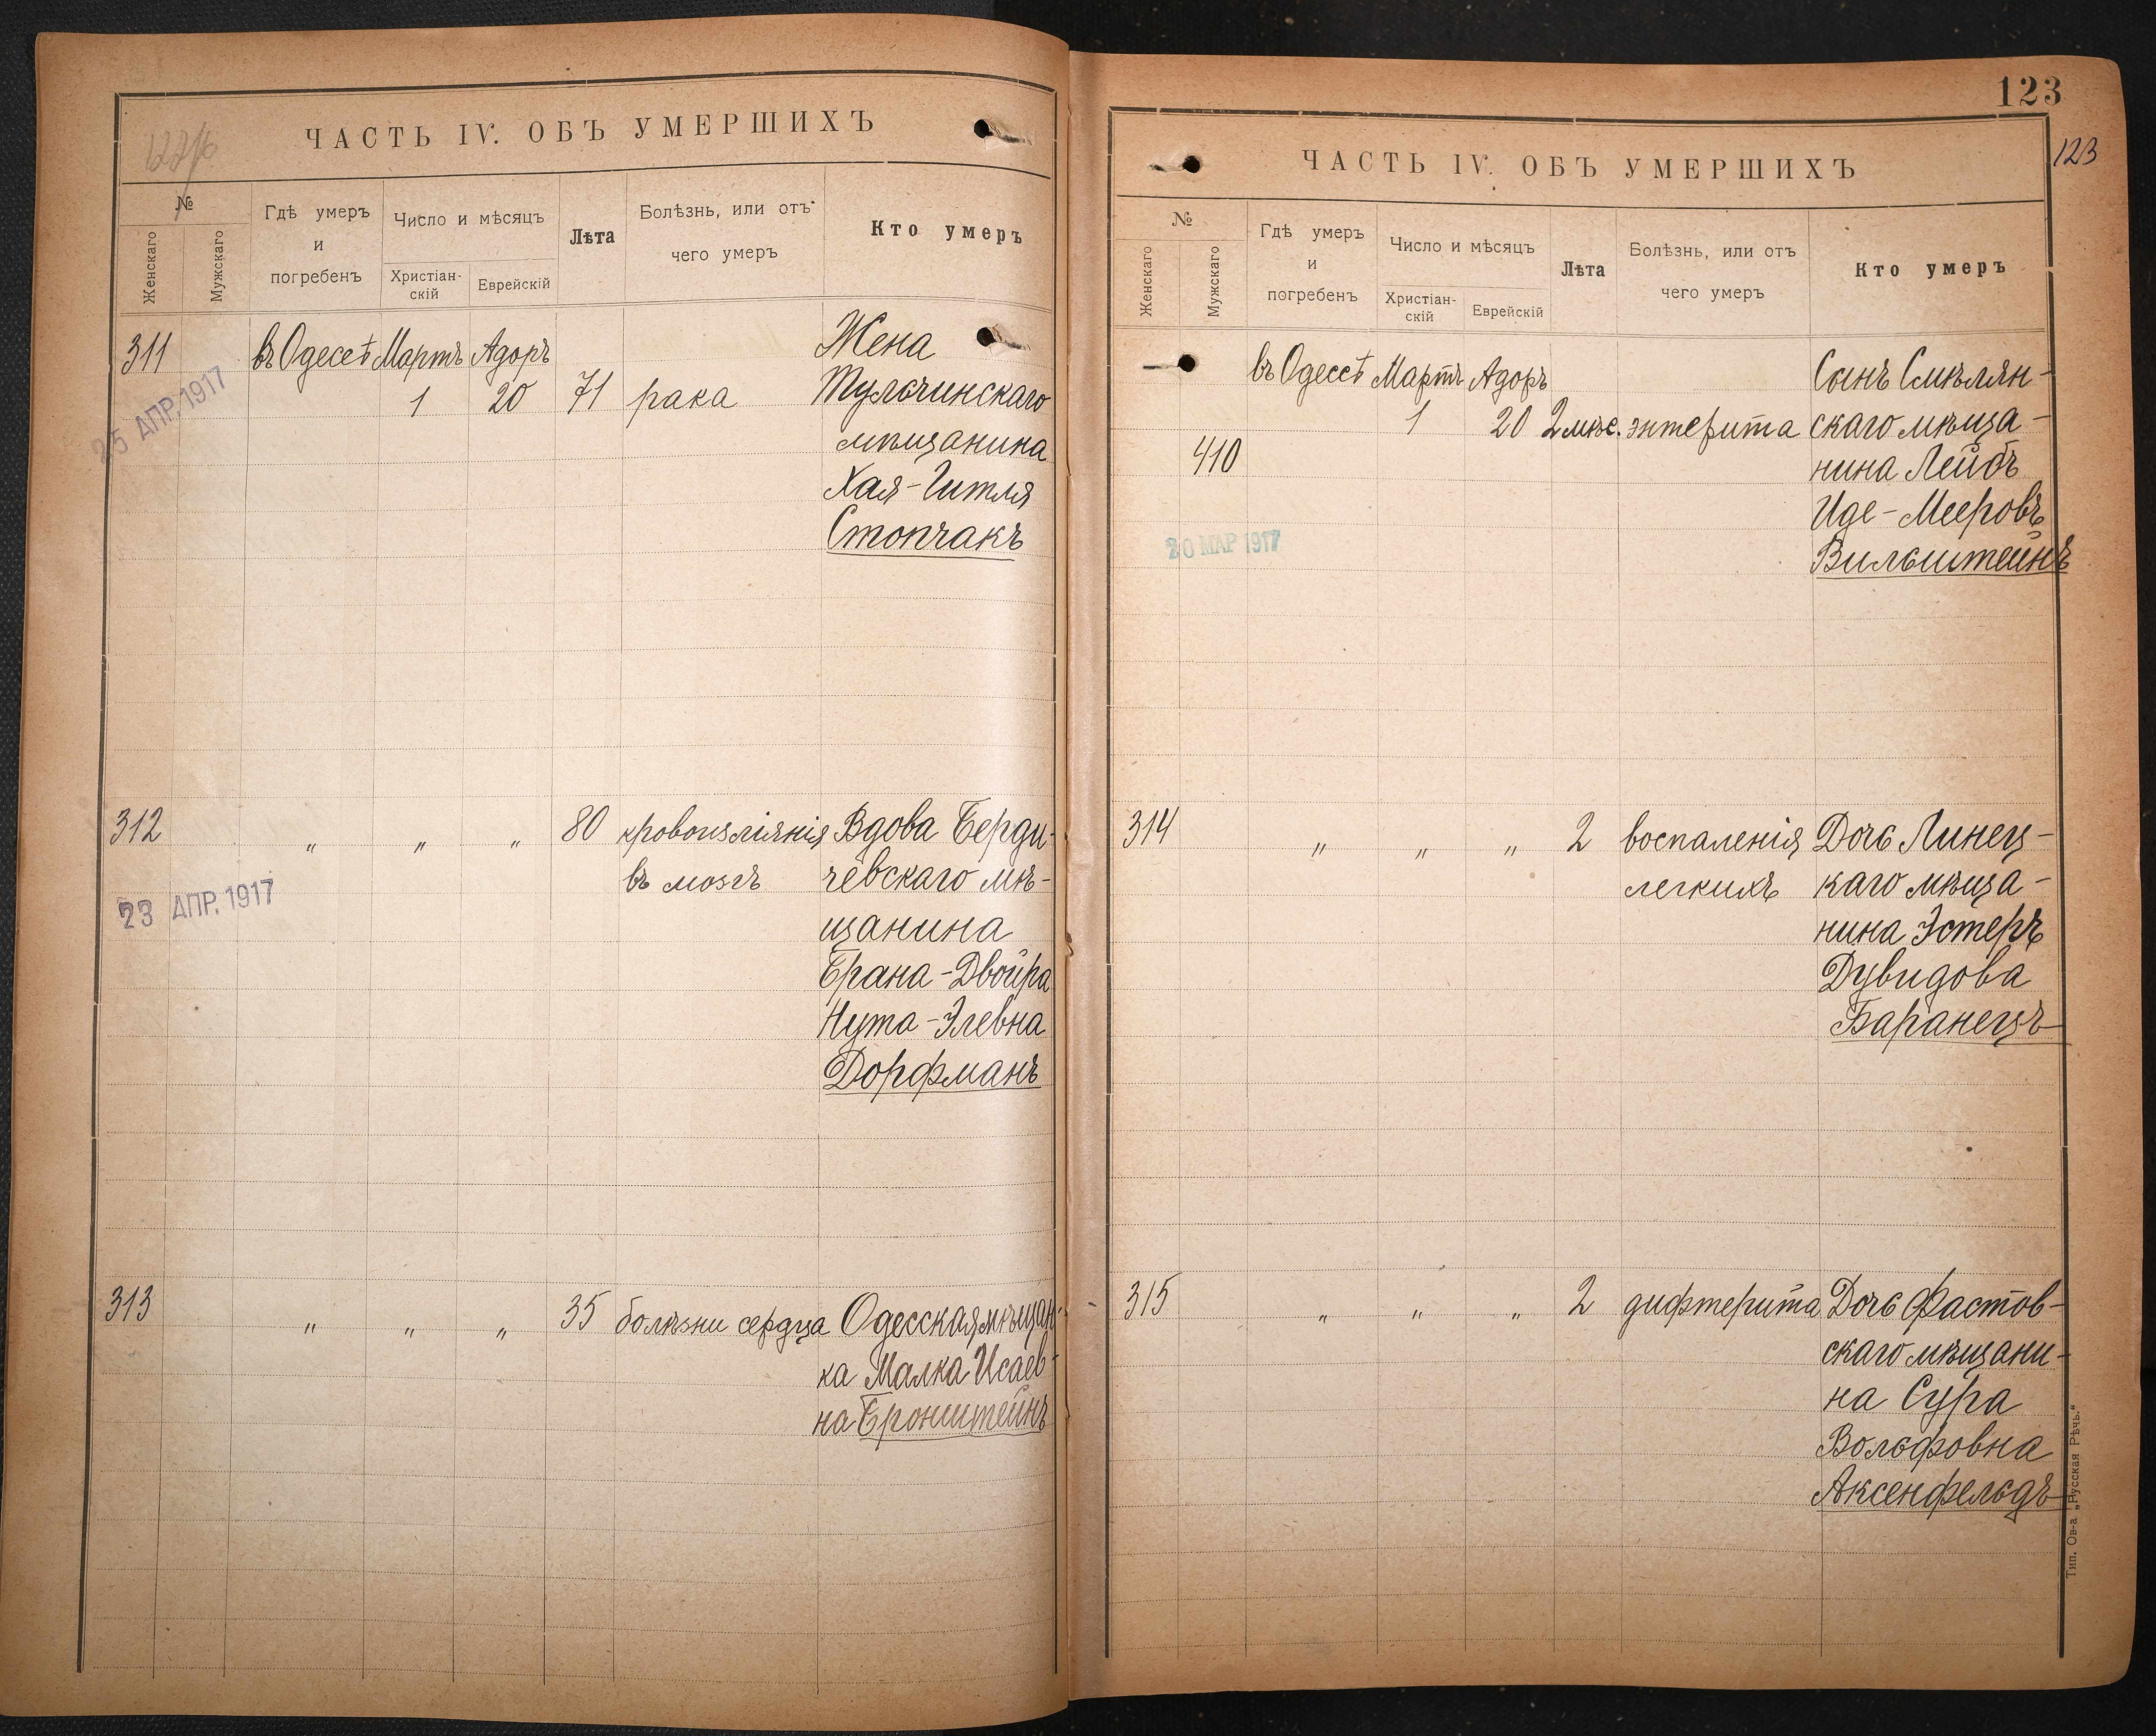 ЧАСТЬ IV. ОБЪ УМЕРШИХЪ
№
Женскаго
Мужскаго
Гдѣ умеръ
и
погребенъ
Число и мѣсяцъ
Христіан-
скій
Еврейскій
Лѣта
Болѣзнь, или отъ
чего умеръ
Кто умеръ
311 въ Одессѣ Мартъ Адоръ Жена
1 20 71 рака Тульчинскаго
25 АПР. 1917
мѣщанина
Хая-Гитля
Стопчакъ
312 " " " 80 кровоизліянія Вдова Берди-
въ мозгъ чевскаго мѣ-
23 АПР. 1917
щанина
Брана-Двойра
Нута-Элевна
Дорфманъ
313 " " " 35 болѣзни сердца Одесская мѣщан-
ка Малка Исаев-
на Бронштейнъ
123
123
ЧАСТЬ IV. ОБЪ УМЕРШИХЪ
№
Женскаго
Мужскаго
Гдѣ умеръ
и
погребенъ
Число и мѣсяцъ
Христіан-
скій
Еврейскій
Лѣта
Болѣзнь, или отъ
чего умеръ
Кто умеръ
въ Одессѣ Мартъ Адоръ Сынъ Смѣлян-
1 20 2 мѣс. энтерита скаго мѣща-
410 нина Лейбъ
Иде-Мееровъ
20 МАР 1917
Вильштейнъ
314 " " " 2 воспаленія Дочь Линец-
легкихъ каго мѣща-
нина Эстеръ
Дувидова
Баранецъ
315 " " " 2 дифтерита Дочь Фастов-
скаго мѣщани-
на Сура
Вольфовна
Аксенфельдъ
Тип. Ов-а „Русская Рѣчь.“